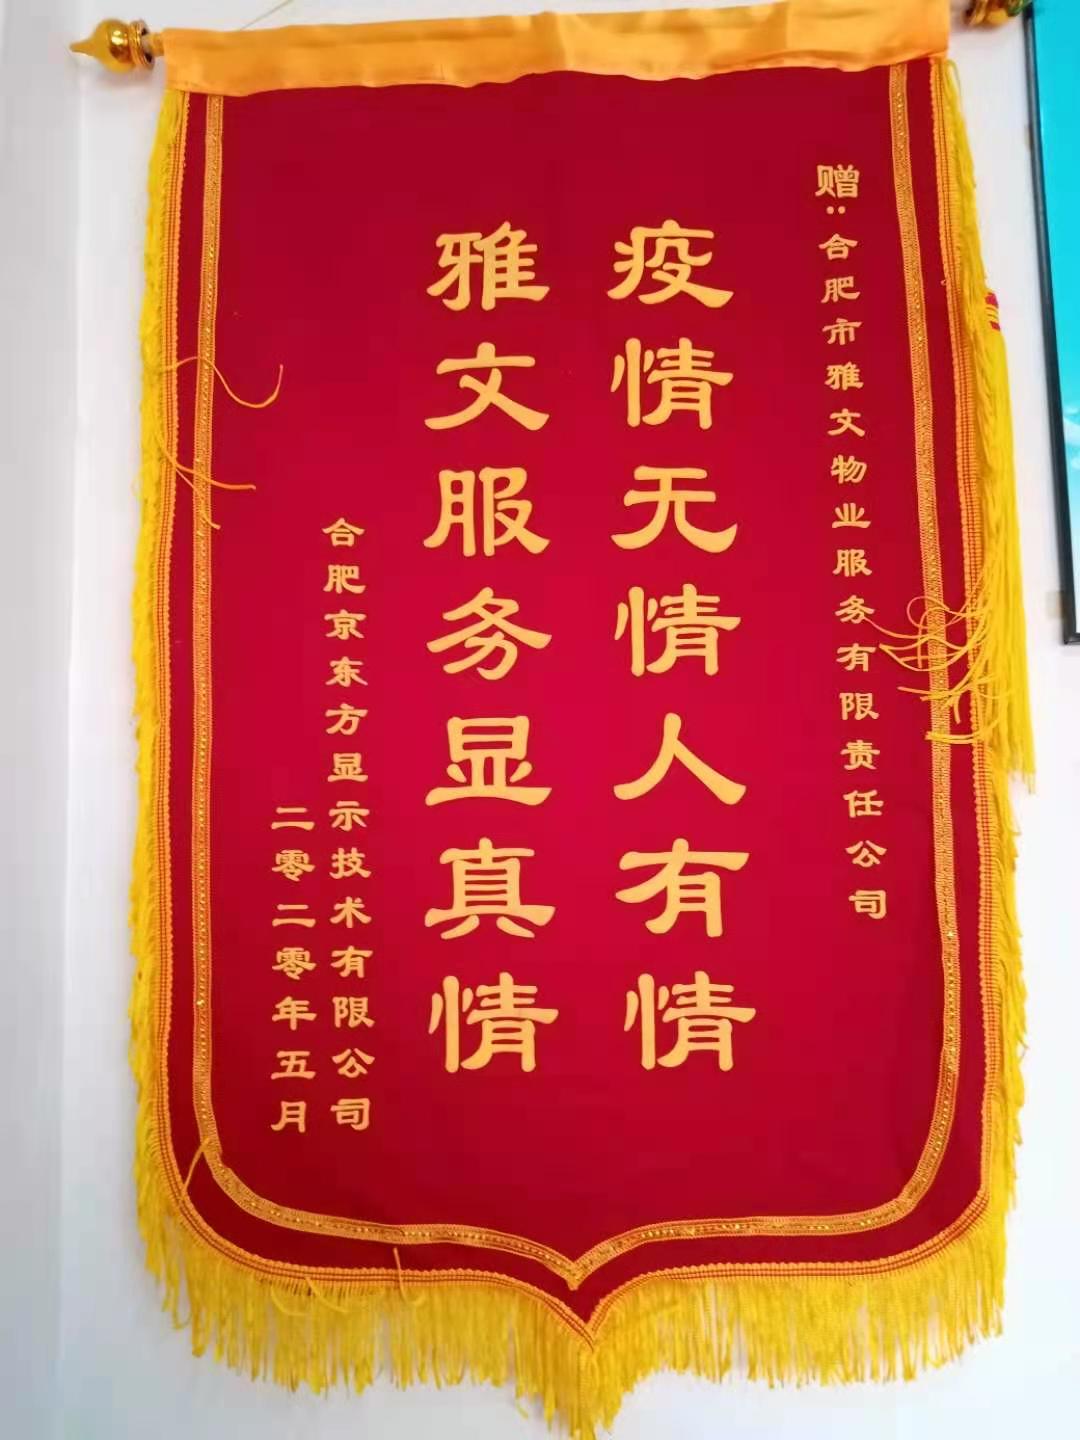 赠：合肥市雅文物业服务有限责任公司
疫情无情人有情
雅文服务显真情
合肥京东方显示技术有限公司
二零二零年五月